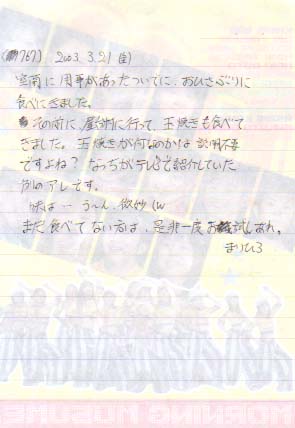 (767) 2003.3.21(金)
室蘭に用事があったついでに、おひさぶりに
食べにきました。
その前に、屋台村に行って、玉焼きも食べて
きました。玉焼きが何なのかは説明不要
ですよね？なっちがテレビで紹介していた
例のアレです。
味は… う〜ん、微妙(w
まだ食べてない方は、是非一度お試しあれ。
まりひろ
MORNING MUSUME